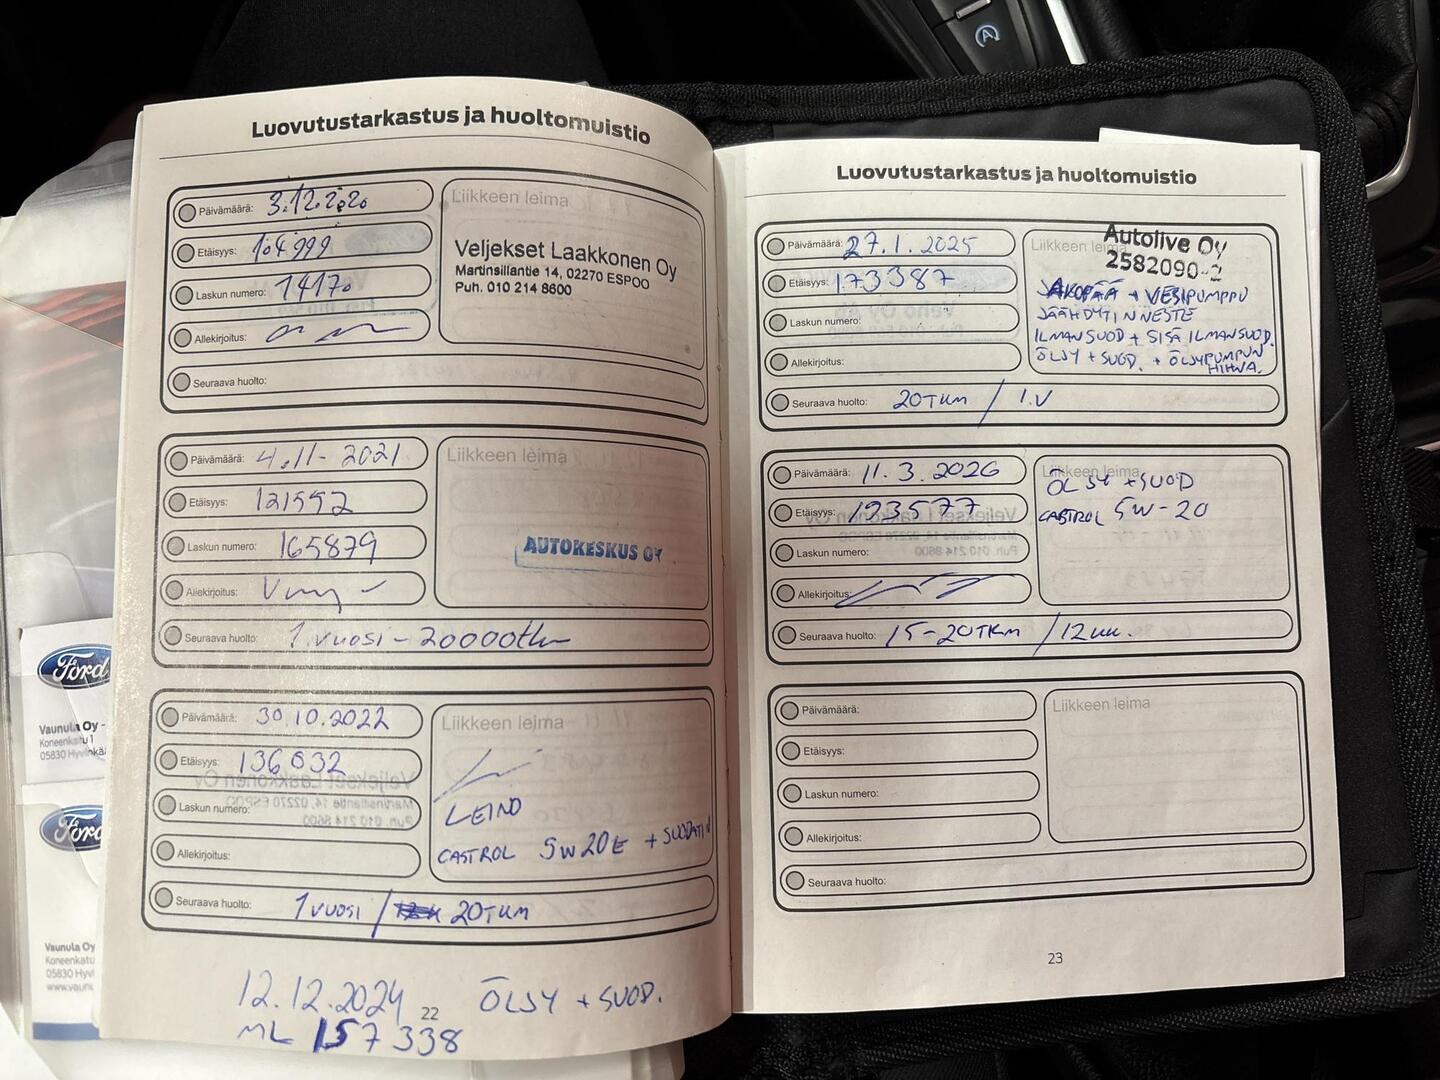 Luovutustarkastus ja huoltomuistio
Päivämäärä: 3.12.2020
Etäisyys: 104999
Laskun numero: 14170
Allekirjoitus:
Seuraava huolto:
Liikkeen leima
Veljekset Laakkonen Oy
Martinsillantie 14, 02270 ESPOO
Puh. 010 214 8600
Päivämäärä: 4.11-2021
Etäisyys: 121552
Laskun numero: 165879
Allekirjoitus:
Seuraava huolto: 1 vuosi - 20000tkm
Liikkeen leima
AUTOKESKUS OY
Päivämäärä: 30.10.2022
Etäisyys: 136632
Laskun numero:
Allekirjoitus:
Seuraava huolto: 1 VUOSI / 20TKM
Liikkeen leima
LEINO
CASTROL 5W20E + SUODATIN
12.12.2024 ÖLJY + SUOD.
ML 157338
22
Luovutustarkastus ja huoltomuistio
Päivämäärä: 27.1.2025
Etäisyys: 173387
Laskun numero:
Allekirjoitus:
Seuraava huolto: 20TKM / 1.V
Liikkeen leima
Autolive Oy
2582090-2
JAKOPÄÄ + VESIPUMPPU
JÄÄHDYTINNESTE
ILMANSUOD + SISÄ ILMANSUOD.
ÖLJY + SUOD. + ÖLJYPUMPUN
HIHNA.
Päivämäärä: 11.3.2026
Etäisyys: 193577
Laskun numero:
Allekirjoitus:
Seuraava huolto: 15-20TKM / 12kk.
Liikkeen leima
ÖLJY + SUOD
CASTROL 5W-20
Päivämäärä:
Etäisyys:
Laskun numero:
Allekirjoitus:
Seuraava huolto:
Liikkeen leima
23
Ford
Vaunula Oy -
Koneenkatu 1
05830 Hyvinkää
Ford
Vaunula Oy
05830